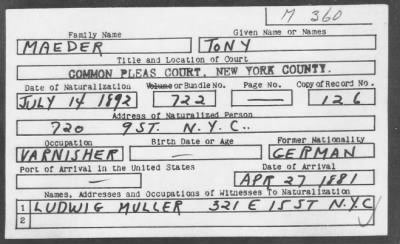 M 360
Family Name Given Name or Names
MAEDER TONY
Title and Location of Court
COMMON PLEAS COURT, NEW YORK COUNTY.
Date of Naturalization Volume or Bundle No. Page No. Copy of Record No.
JULY 14 1892 722 — 126
Address of Naturalized Person
720 9 ST. N.Y.C..
Occupation Birth Date or Age Former Nationality
VARNISHER — GERMAN
Port of Arrival in the United States Date of Arrival
— APR 27 1881
Names, Addresses and Occupations of Witnesses To Naturalization
1 LUDWIG MULLER 321 E 15 ST N.Y.C
2